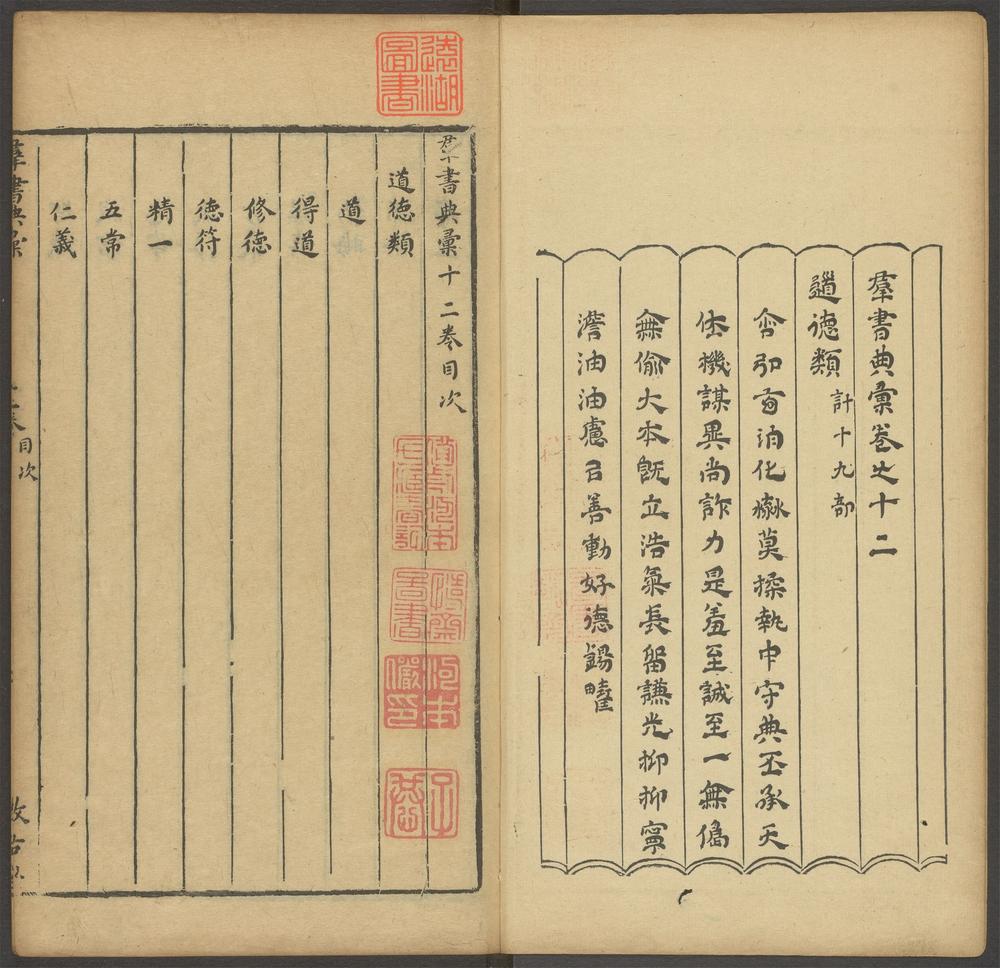 羣書典彙卷之十二
道德類 計十九部
含弘 化 莫揉執中守典丕承天
休機謀 尚詐力是羞至誠至一無僞
無偷大本旣立浩氣長留謙光抑抑寧
澹油油慮以善動好德錫疇
遠湖圖書
羣書典彙十二卷目次
道德類
道
得道
修德
德符
精一
五常
仁義
羣書典彙 目次
河本儼印